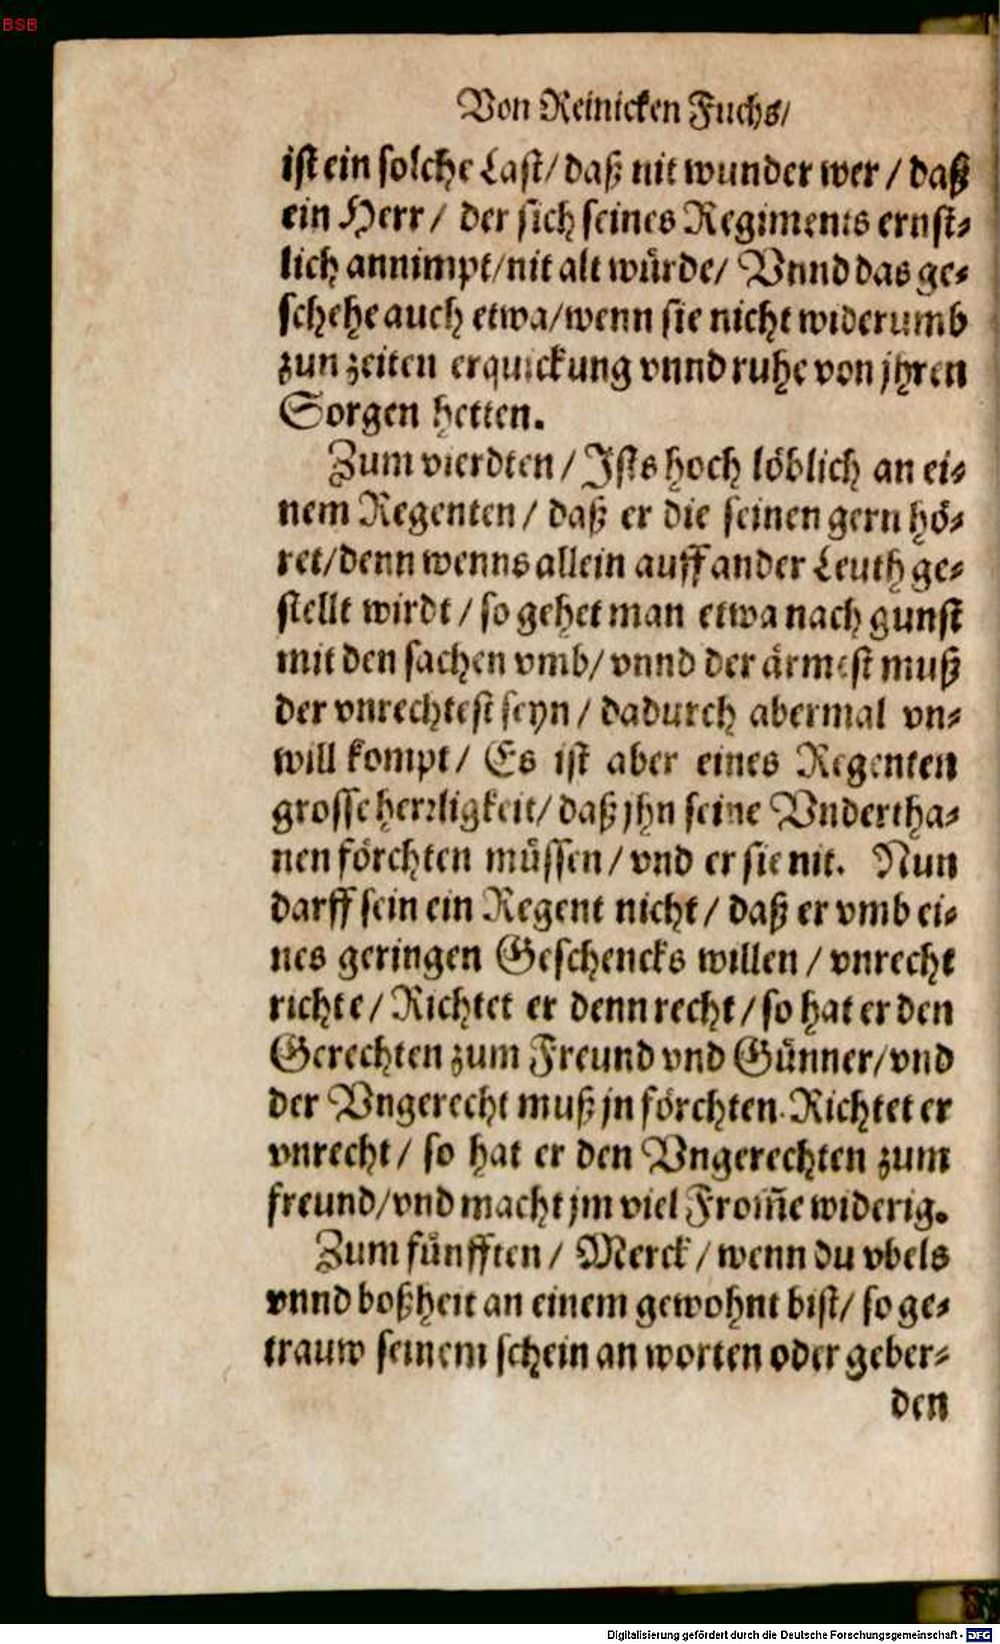 BSB
Von Reinicken Fuchs/
ist ein solche Last/ daß nit wunder wer / daß
ein Herr/ der sich seines Regiments ernst-
lich annimpt/nit alt würde/ Vnnd das ge-
schehe auch etwa/wenn sie nicht widerumb
zun zeiten erquickung vnnd ruhe von jhren
Sorgen hetten.
Zum vierdten / Ists hoch löblich an ei-
nem Regenten / daß er die seinen gern hö-
ret/denn wenns allein auff ander Leuth ge-
stellt wirdt / so gehet man etwa nach gunst
mit den sachen vmb/ vnnd der ärmest muß
der vnrechtest seyn / dadurch abermal vn-
will kompt/ Es ist aber eines Regenten
grosse herrligkeit/ daß jhn seine Vndertha-
nen förchten müssen / vnd er sie nit. Nun
darff sein ein Regent nicht / daß er vmb ei-
nes geringen Geschencks willen / vnrecht
richte / Richtet er denn recht / so hat er den
Gerechten zum Freund vnd Günner/vnd
der Vngerecht muß jn förchten. Richtet er
vnrecht / so hat er den Vngerechten zum
freund/vnd macht jm viel From̅e widerig.
Zum fünfften / Merck / wenn du vbels
vnnd boßheit an einem gewohnt bist/ so ge-
trauw seinem schein an worten oder geber-
den
Digitalisierung gefördert durch die Deutsche Forschungsgemeinschaft - DFG